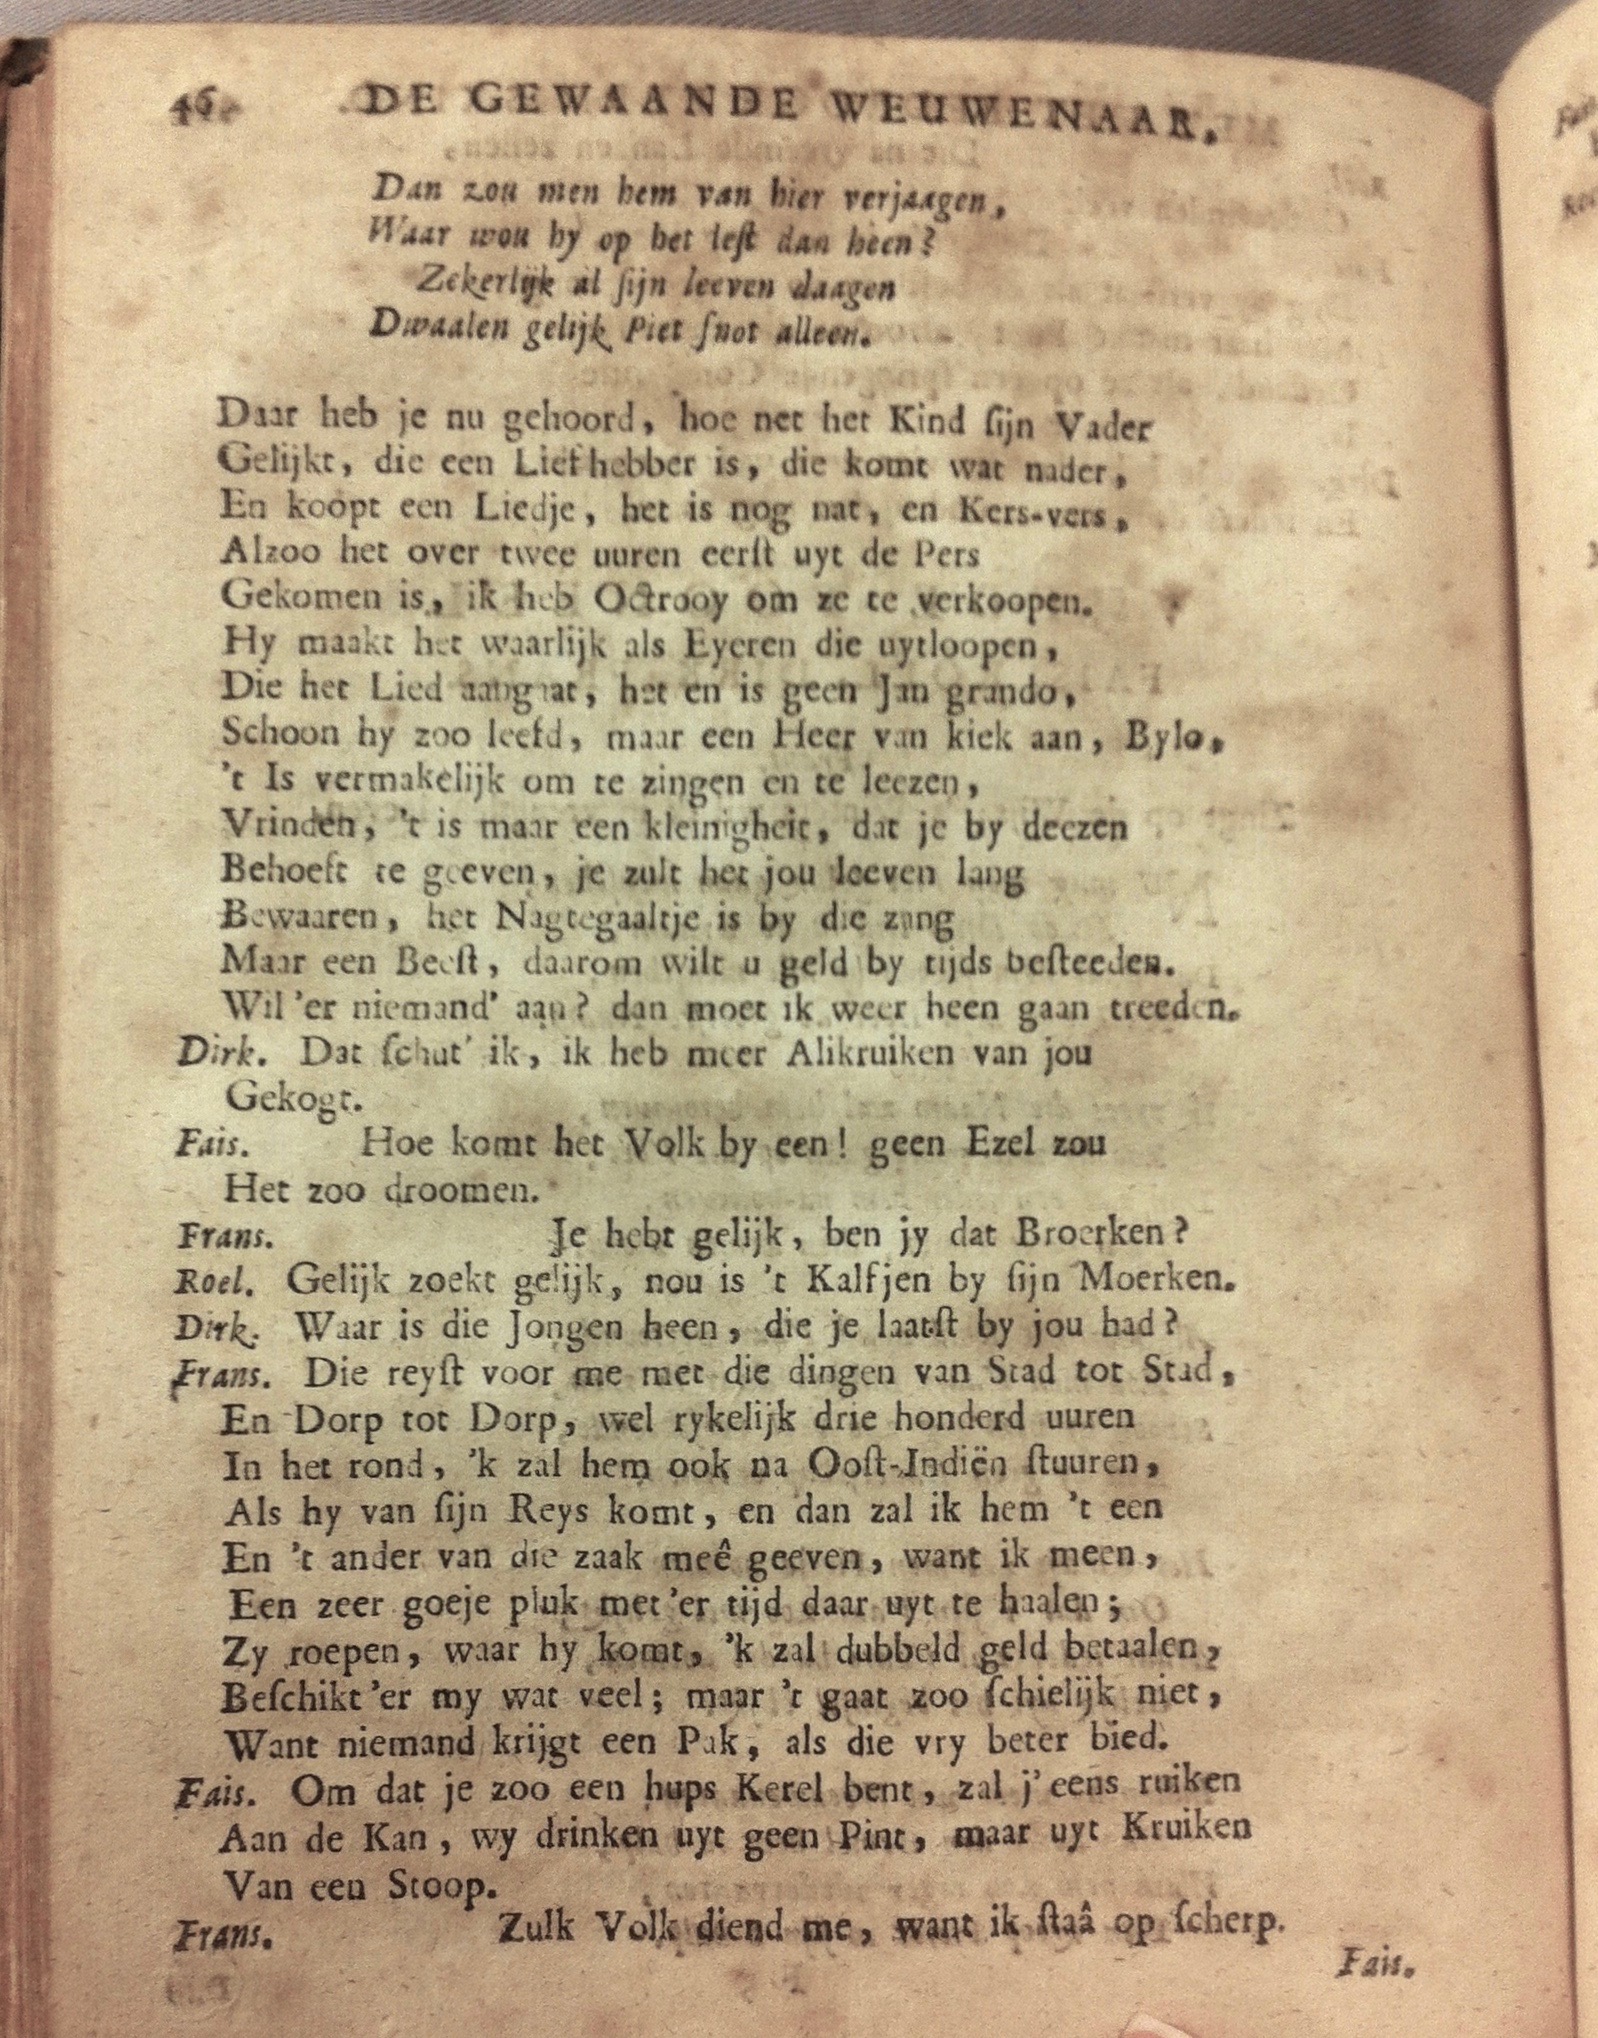 46 DE GEWAANDE WEUWENAAR.
Dan zou men hem van hier verjaagen,
Waar wou hy op het leſt dan heen?
Zekerlijk al ſijn leeven daagen
Dwaalen gelijk Piet ſnot alleen.
Daar heb je nu gehoord, hoe net het Kind ſijn Vader
Gelijkt, die een Liefhebber is, die komt wat nader,
En koopt een Liedje, het is nog nat, en Kers-vers,
Alzoo het over twee uuren eerſt uyt de Pers
Gekomen is, ik heb Octrooy om ze te verkoopen.
Hy maakt het waarlijk als Eyeren die uytloopen,
Die het Lied aangaat, het en is geen Jan grando,
Schoon hy zoo leefd, maar een Heer van kiek aan, Bylo,
't Is vermakelijk om te zingen en te leezen,
Vrinden, 't is maar een kleinigheit, dat je by deezen
Behoeft te geeven, je zult het jou leeven lang
Bewaaren, het Nagtegaaltje is by die zang
Maar een Beeſt, daarom wilt u geld by tijds beſteeden.
Wil 'er niemand' aan? dan moet ik weer heen gaan treeden.
Dirk. Dat ſchut' ik, ik heb meer Alikruiken van jou
Gekogt.
Fais. Hoe komt het Volk by een! geen Ezel zou
Het zoo droomen.
Frans. Je hebt gelijk, ben jy dat Broerken?
Roel. Gelijk zoekt gelijk, nou is 't Kalfjen by ſijn Moerken.
Dirk. Waar is die Jongen heen, die je laatſt by jou had?
Frans. Die reyſt voor me met die dingen van Stad tot Stad,
En Dorp tot Dorp, wel rykelijk drie honderd uuren
In het rond, 'k zal hem ook na Ooſt-Indiën ſtuuren,
Als hy van ſijn Reys komt, en dan zal ik hem 't een
En 't ander van die zaak meê geeven, want ik meen,
Een zeer goeje pluk met 'er tijd daar uyt te haalen;
Zy roepen, waar hy komt, 'k zal dubbeld geld betaalen,
Beſchikt 'er my wat veel; maar 't gaat zoo ſchielijk niet,
Want niemand krijgt een Pak, als die vry beter bied.
Fais. Om dat je zoo een hups Kerel bent, zal j' eens ruiken
Aan de Kan, wy drinken uyt geen Pint, maar uyt Kruiken
Van een Stoop.
Frans. Zulk Volk diend me, want ik ſtaâ op ſcherp.
Fais.